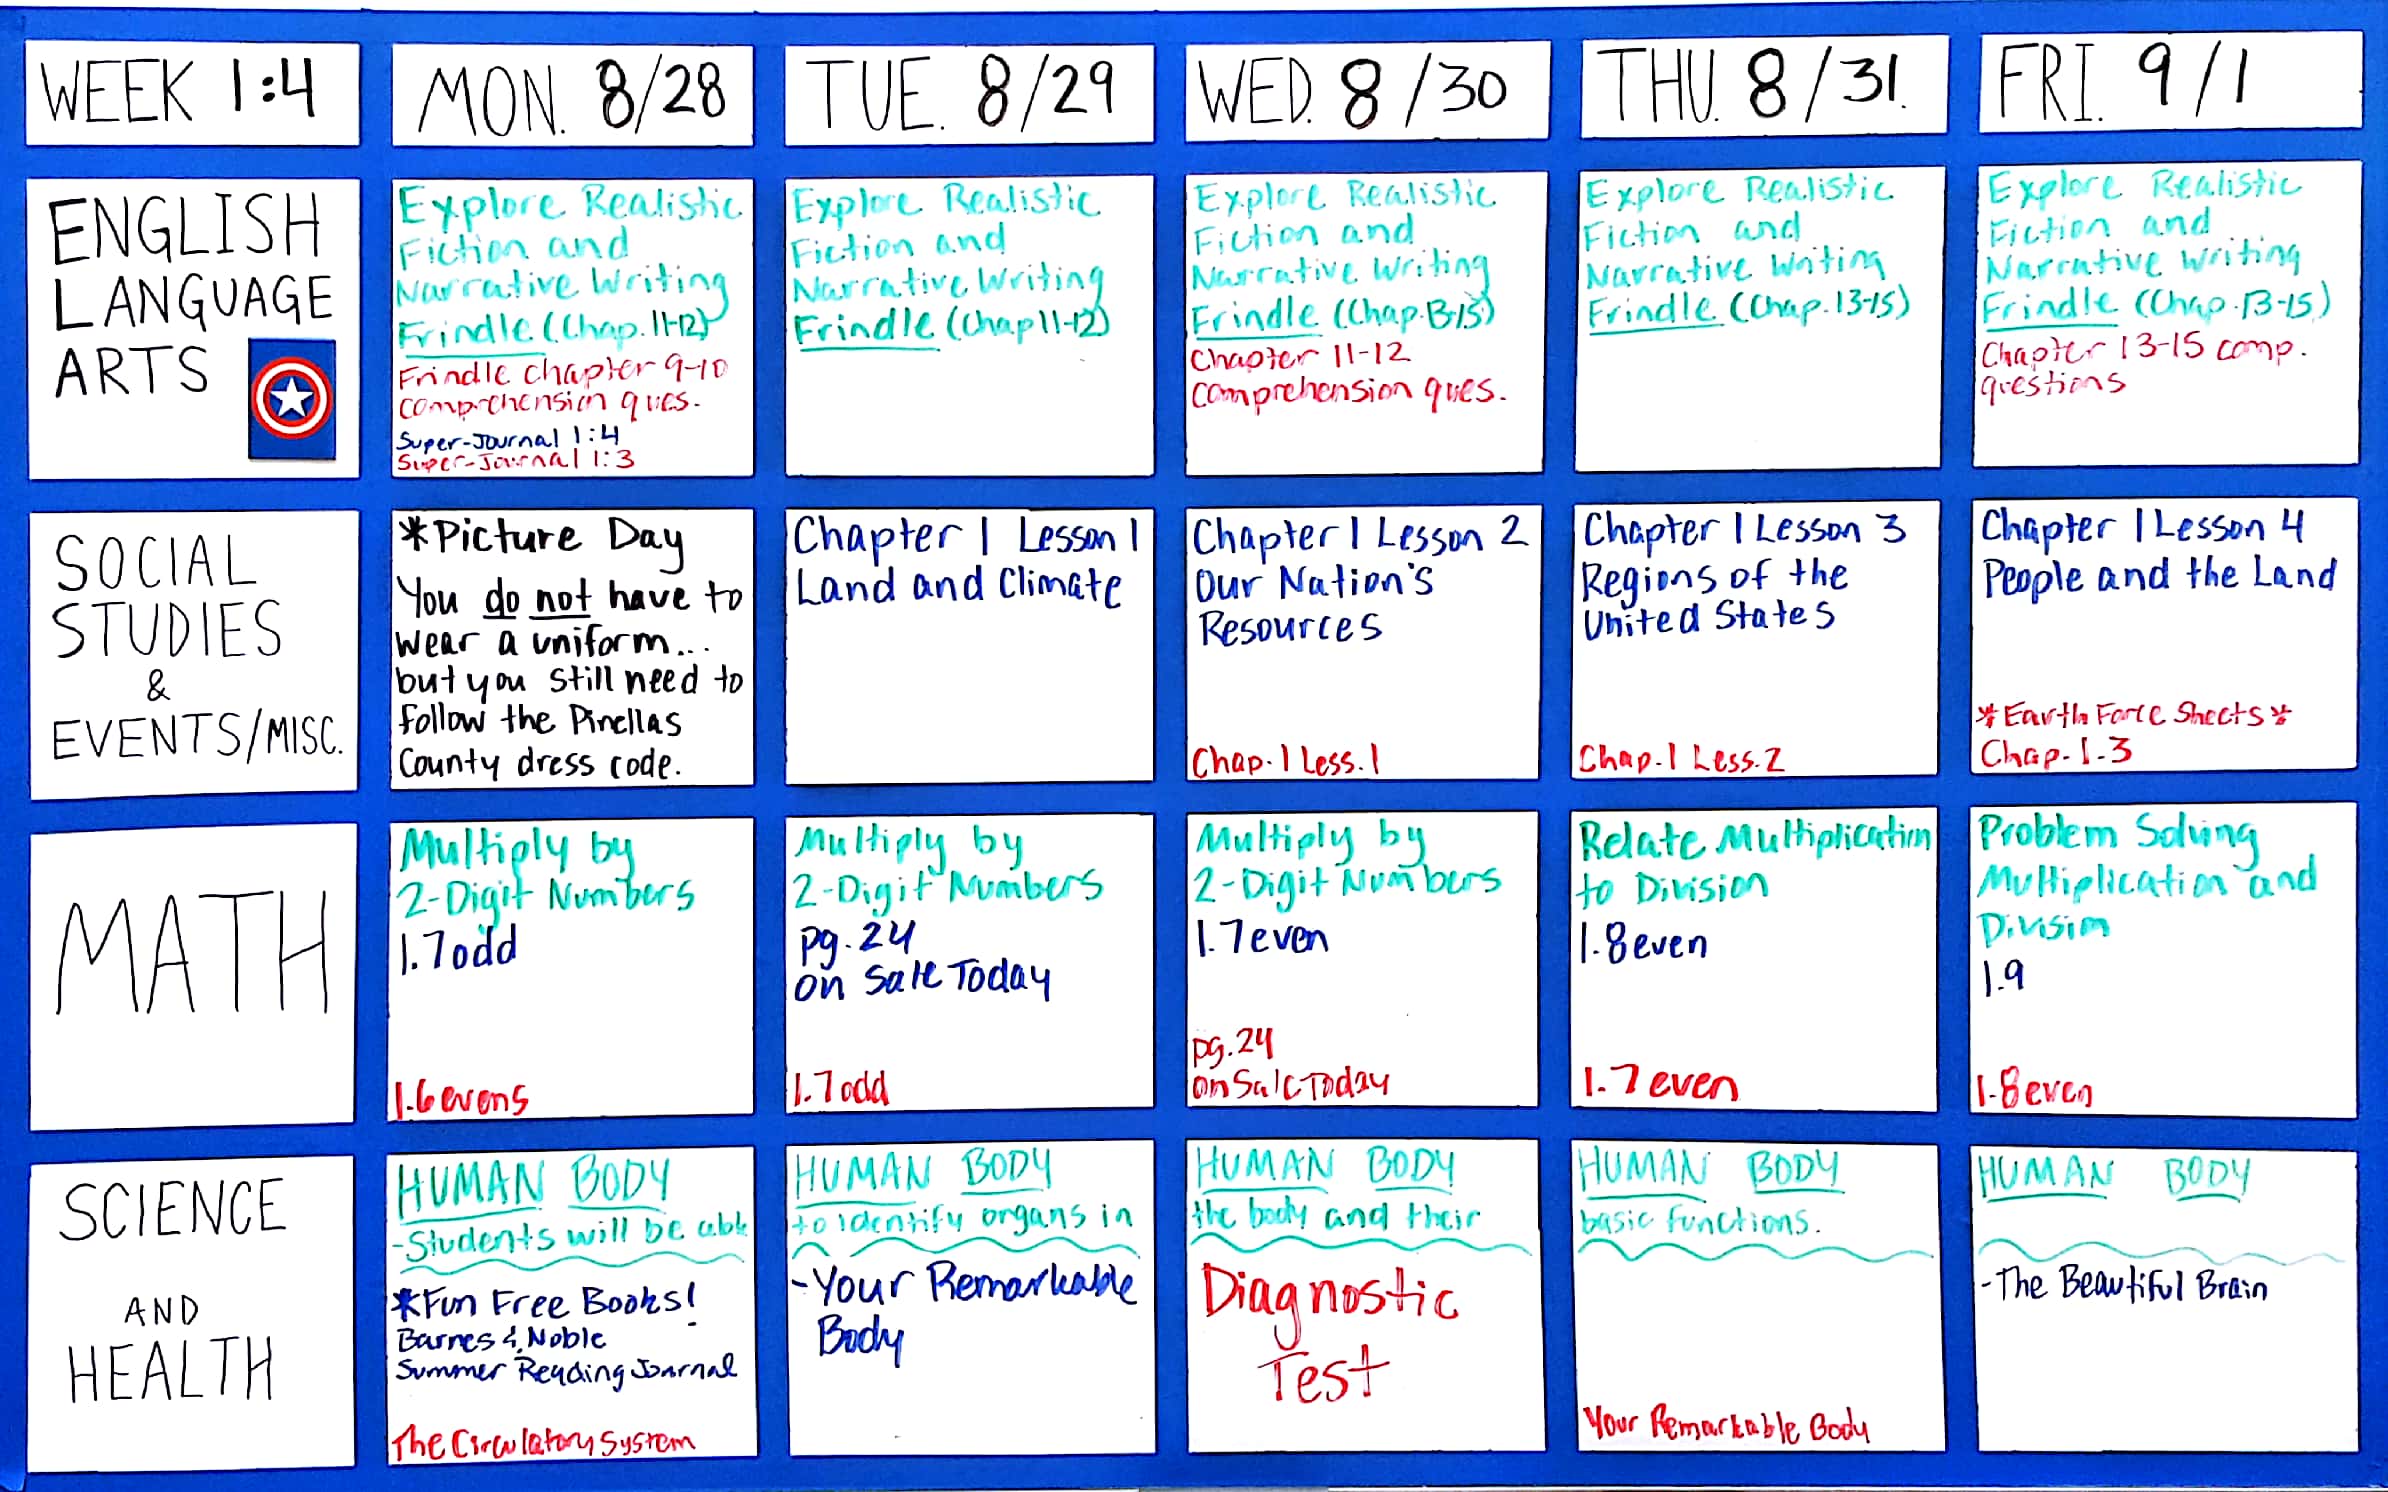 WEEK 1:4
MON. 8/28
TUE. 8/29
WED. 8/30
THU. 8/31.
FRI. 9/1
ENGLISH
LANGUAGE
ARTS
Explore Realistic
Fiction and
Narrative Writing
Frindle (Chap. 11-12)
Frindle chapter 9-10
comprehension ques.
Super-Journal 1:4
Super-Journal 1:3
Explore Realistic
Fiction and
Narrative Writing
Frindle (Chap 11-12)
Explore Realistic
Fiction and
Narrative Writing
Frindle (Chap. 13-15)
Chapter 11-12
comprehension ques.
Explore Realistic
Fiction and
Narrative Writing
Frindle (Chap. 13-15)
Explore Realistic
Fiction and
Narrative Writing
Frindle (Chap. 13-15)
Chapter 13-15 comp.
questions
SOCIAL
STUDIES
&
EVENTS/MISC.
*Picture Day
You do not have to
wear a uniform...
but you still need to
follow the Pinellas
County dress code.
Chapter 1 Lesson 1
Land and Climate
Chapter 1 Lesson 2
Our Nation's
Resources
Chap. 1 Less. 1
Chapter 1 Lesson 3
Regions of the
United States
Chap. 1 Less. 2
Chapter 1 Lesson 4
People and the Land
*Earth Force Sheets*
Chap. 1.3
MATH
Multiply by
2-Digit Numbers
1.7 odd
1.6 evens
Multiply by
2-Digit Numbers
pg. 24
on Sale Today
1.7 odd
Multiply by
2-Digit Numbers
1.7 even
pg. 24
on Sale Today
Relate Multiplication
to Division
1.8 even
1.7 even
Problem Solving
Multiplication and
Division
1.9
1.8 even
SCIENCE
AND
HEALTH
HUMAN BODY
-Students will be able
*Fun Free Books!
Barnes & Noble
Summer Reading Journal
The Circulatory System
HUMAN BODY
to identify organs in
-Your Remarkable
Body
HUMAN BODY
the body and their
Diagnostic
Test
HUMAN BODY
basic functions.
Your Remarkable Body
HUMAN BODY
-The Beautiful Brain